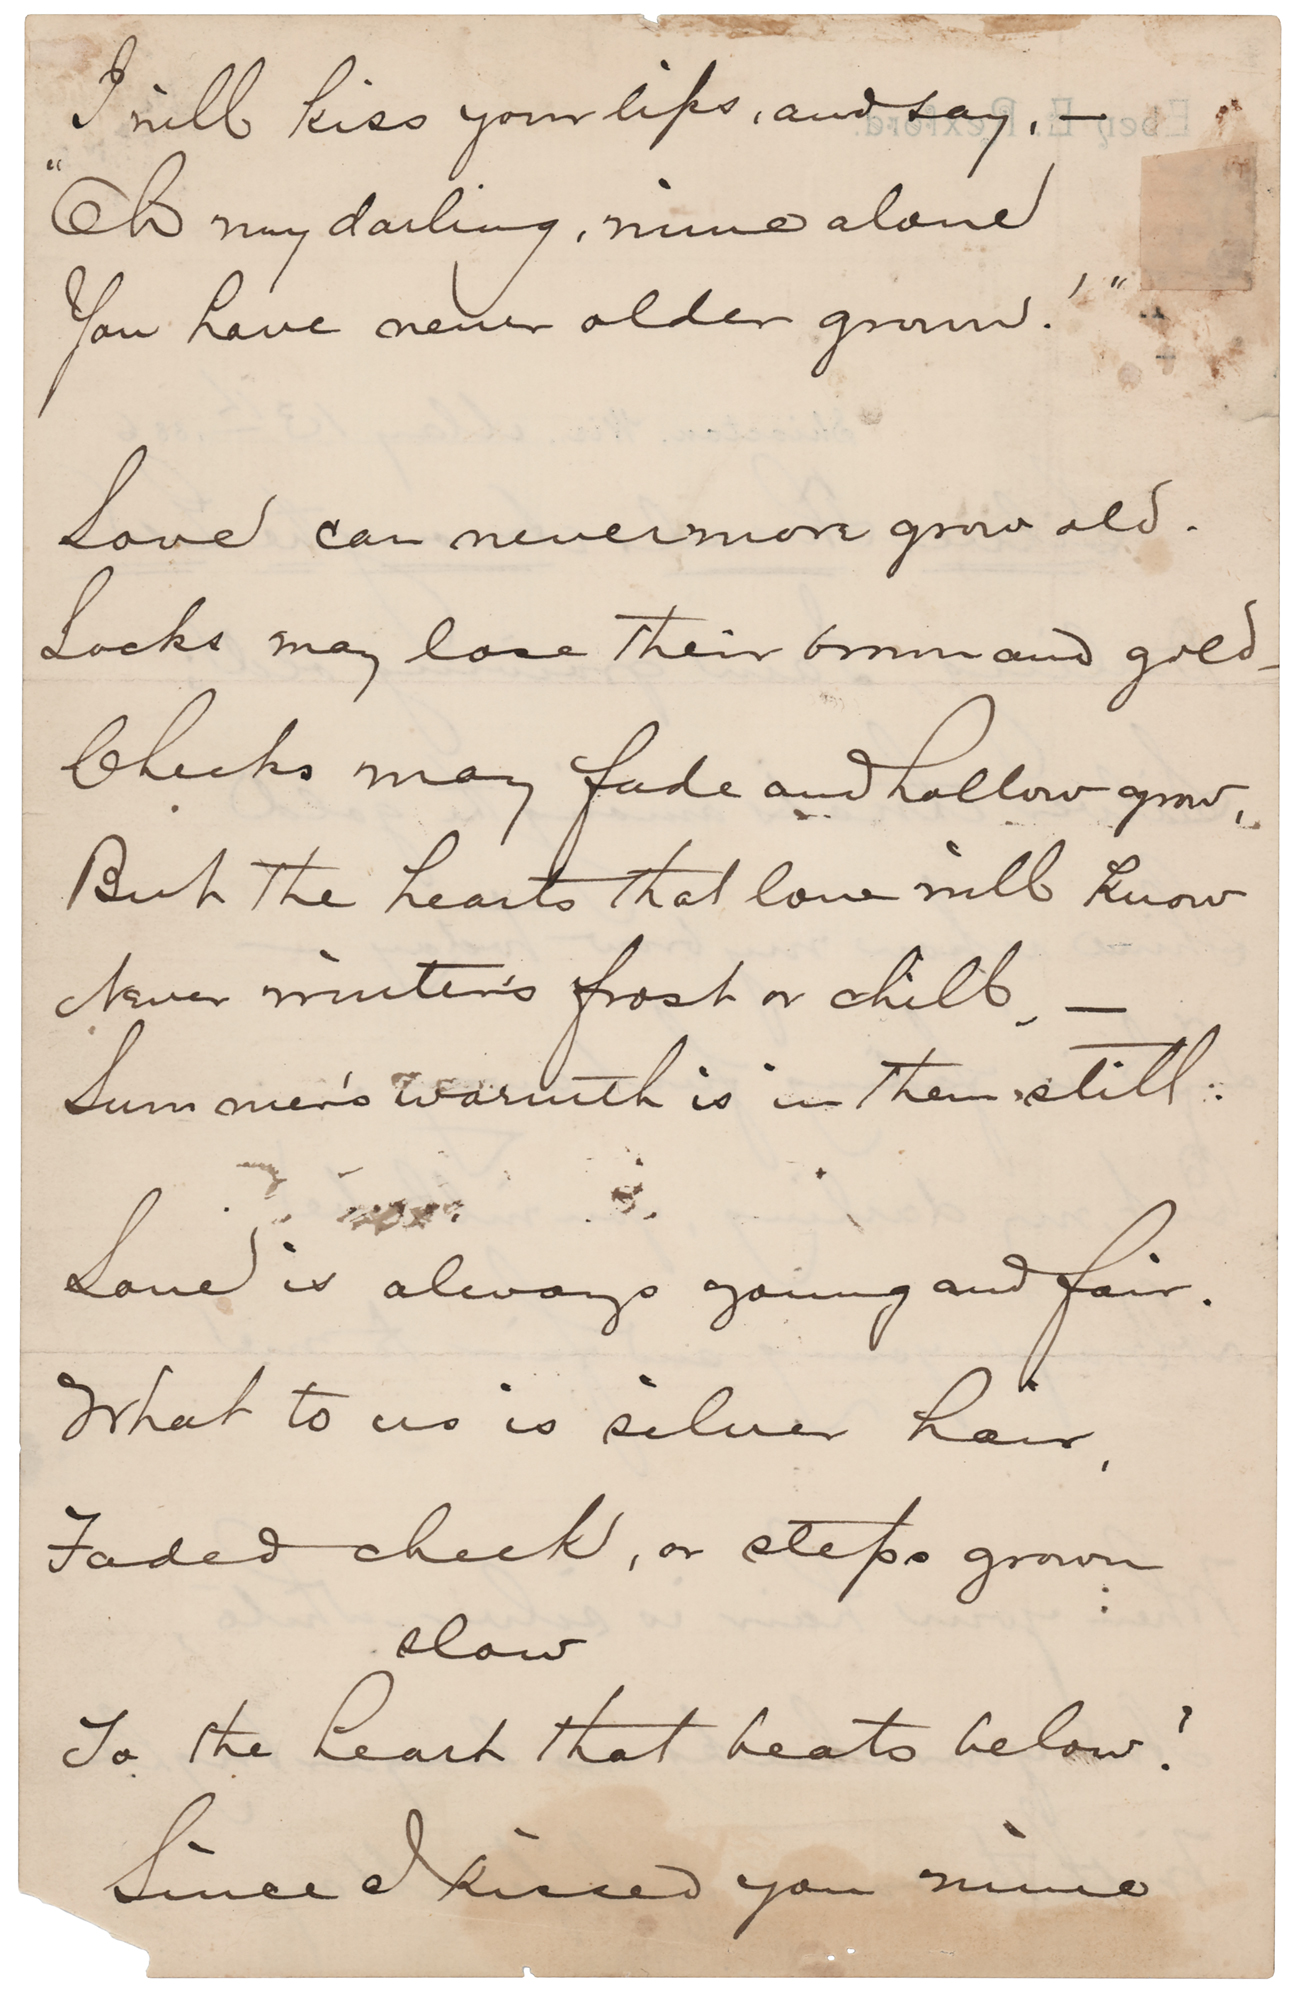 I will kiss your lips, and say, —
"Oh my darling, mine alone
You have never older grown!"
Love can nevermore grow old.
Locks may lose their brown and gold —
Cheeks may fade and hollow grow,
But the hearts that love will know
Never winter's frost or chill, —
Summer's warmth is in them still.
Love is always young and fair.
What to us is silver hair,
Faded cheek, or steps grown
slow
To the heart that beats below?
Since I kissed you mine